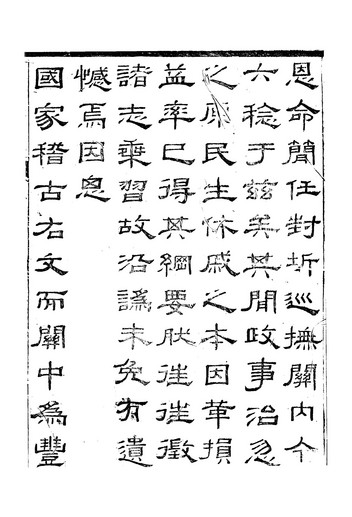 恩命簡任封圻巡撫關內今
六稔于兹矣其間政事治忽
之原民生休戚之本因革損
益率已得其綱要肰徃徃徵
諸志乘習故沿譌未免有遺
憾焉因思
國家稽古右文而關中為豐